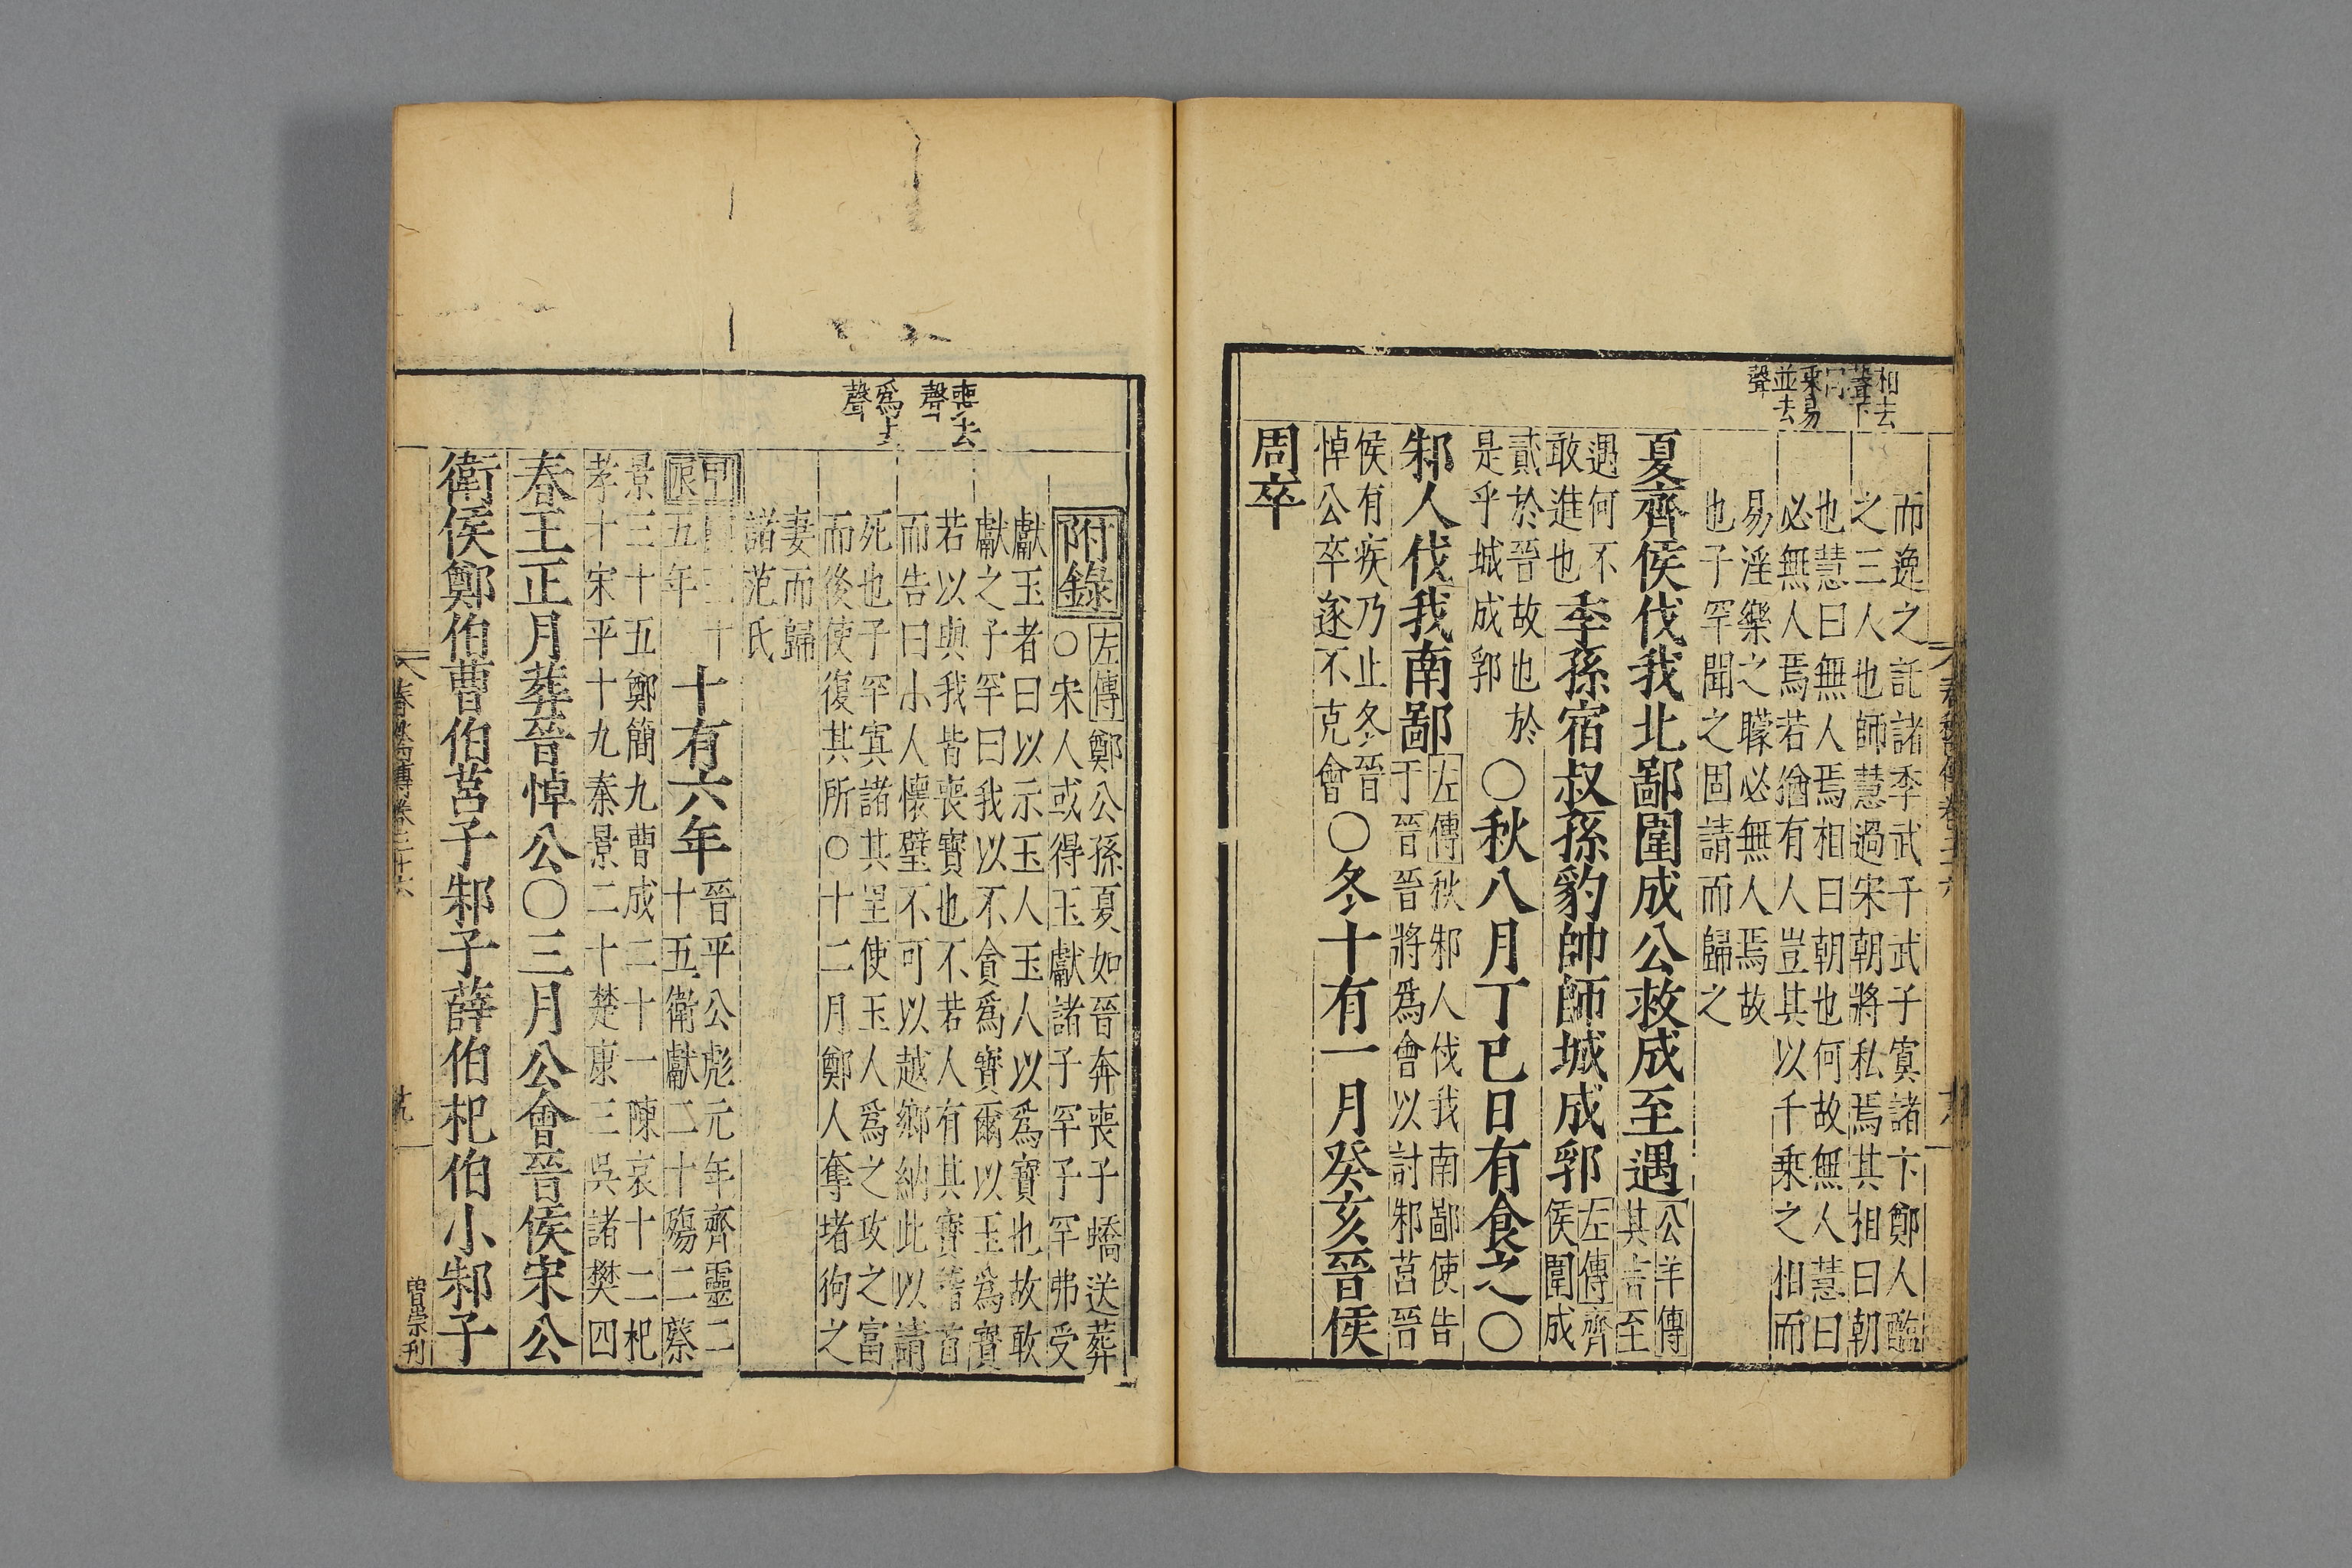 相去
聲下
同
乘易
並去
聲
而逸之託諸季武子武子寘諸卞鄭人醢
之三人也師慧過宋朝將私焉其相曰朝
也慧曰無人焉相曰朝也何故無人慧曰
必無人焉若猶有人豈其以千乘之相而
易淫樂之矇必無人焉故
也子罕聞之固請而歸之
夏齊侯伐我北鄙圍成公救成至遇
公羊傳
其言至
遇何不
敢進也
季孫宿叔孫豹帥師城成郛
左傳齊
侯圍成
貳於晉故也於
是乎城成郛
○秋八月丁巳日有食之○
邾人伐我南鄙
左傳秋邾人伐我南鄙使告
于晉晉將爲會以討邾莒晉
侯有疾乃止冬晉
悼公卒遂不克會
○冬十有一月癸亥晉侯
周卒
喪去
聲
爲去
聲
附錄
左傳鄭公孫夏如晉奔喪子蟜送葬
○宋人或得玉獻諸子罕子罕弗受
獻玉者曰以示玉人玉人以爲寶也故敢
獻之子罕曰我以不貪爲寶爾以玉爲寶
若以與我皆喪寶也不若人有其寶稽首
而告曰小人懷璧不可以越鄉納此以請
死也子罕寘諸其里使玉人爲之攻之富
而後使復其所○十二月鄭人奪堵狗之
妻而歸
諸范氏
十有六年
晉平公彪元年齊靈二
十五衛獻二十殤二蔡
景三十五鄭簡九曹成二十一陳哀十二杞
孝十宋平十九秦景二十楚康三吳諸樊四
春王正月葬晉悼公○三月公會晉侯宋公
衛侯鄭伯曹伯莒子邾子薛伯杞伯小邾子
曾崇刊